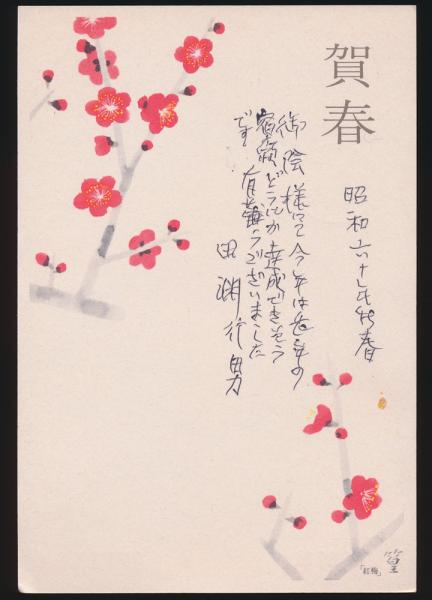 賀春
昭和六十年新春
御陰様にて今年は長年の
宿願どうにか達成できそう
です 有難うございました
田淵行男
「紅梅」
篁